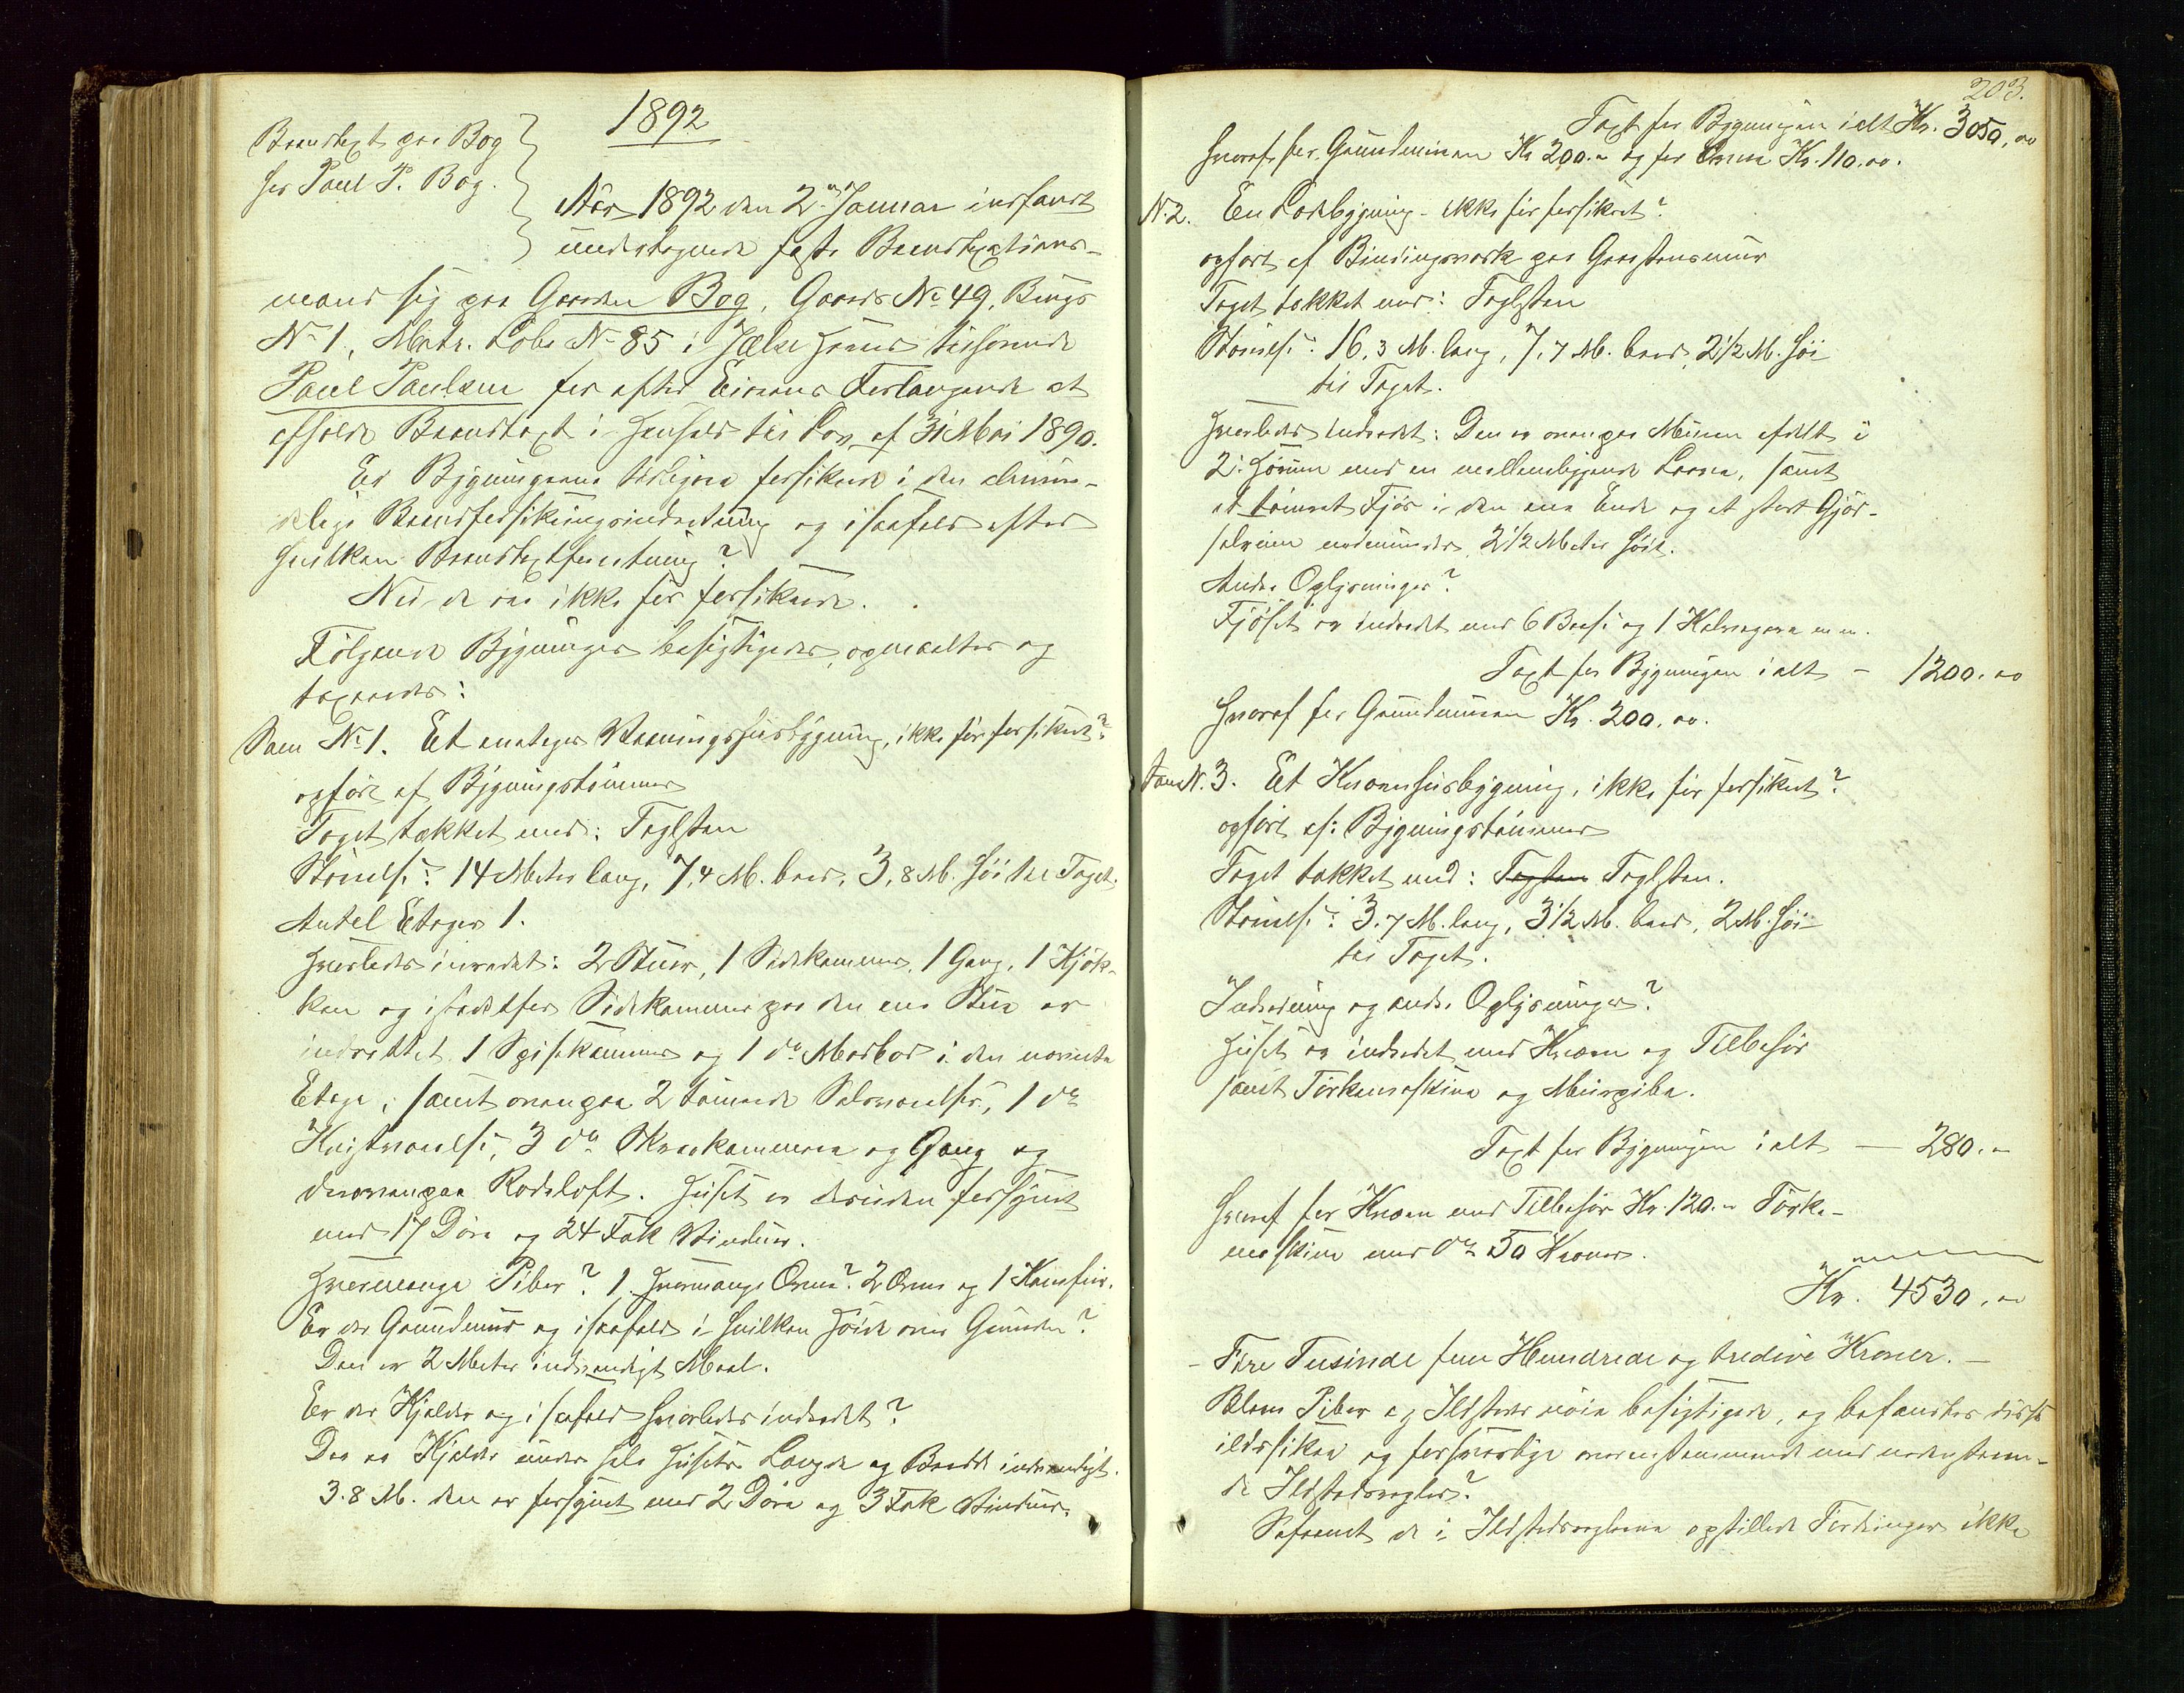 1892
Brandtaxt paa Bog
hos Paul P. Bog.
Aar 1892 den 2den Januar indfandt
undertegnede faste Brandtaxtions-
mænd sig paa Gaarden Bog, Gaards No 49, Brugs
No 1, Matr. Løbe No 85 i Jælse Herred tilhørende
Paul Paulsen for efter Eierens Forlangende at
afholde Brandtaxt i Henhold til Lov af 31 Mai 1890.
Er Bygningerne tidligere forsikrede i den almin-
delige Brandforsikringsindretning og isaafald efter
hvilken Brandtaxtforretning?
Nei, de var ikke før forsikrede.
Følgende Bygninger besigtigedes, opmaaltes og
taxeredes:
Som No 1. Et enetages Vaaningshusbygning, ikke før forsikret?
opført af Bygningstømmer
Taget tækket med: Taglsten
Størrelse: 14 Meter lang, 7,4 M. bred, 3,8 M. høi til Taget.
Antal Etager 1.
Hvorledes indredet: 2 Stuer, 1 Sidekammer, 1 Gang, 1 Kjøk-
ken og istedetfor Sidekammer paa den ene Stue er
indrettet 1 Spisekammer og 1 do Madbod i den nederste
Etage, samt ovenpaa 2 tømrede Salsværelser, 1 do
Kvistværelse, 3 do Skraakammere og Gang og
derovenpaa Rodeloft. Huset er desuden forsynet
med 17 Døre og 24 Fak Vinduer.
Hvormange Piber? 1. Hvormange Ovne? 2 Ovne og 1 Komfur.
Er der Grundmur og isaafald i hvilken Høide over Grunden?
Den er 2 Meter indvendigt Maal.
Er der Kjelder og isaafald hvorledes indredet?
Der er Kjelder under hele Husets Længde og Bredde indvendigt.
3.8 M. den er forsynet med 2 Døre og 3 Fak Vinduer.
203.
Taxt for Bygningen ialt Kr. 3050,00
hvoraf for Grundmuren Kr 200.- og for Ovne Kr. 110.00.
N 2. En Ladebygning - ikke før forsikret?
opført af Bindingsværk paa Graastensmur
Taget tækket med: Taglsten
Størrelse: 16,3 M. lang, 7,7 M. bred, 2 1/2 M. høi
til Taget.
Hvorledes indredet: Den er ovenpaa Muren afdelt i
2 Høirum med en mellemliggende Laave, samt
et tømret Fjøs i den ene Ende og et stort Gjød-
selrum nedenunder, 2 1/2 Meter høit.
Andre Oplysninger?
Fjøset er indredet med 6 Baase og 1 Kalvegare m. m.
Taxt for Bygningen ialt - 1200.00
hvoraf for Grundmuren Kr. 200.00.
Som N. 3. Et Kværnhusbygning, ikke før forsikret?
opført af: Bygningstømmer
Taget tækket med: Tagsten Taglsten.
Størrelse: 3.7 M. lang, 3 1/2 M. bred, 2 M. høi
til Taget.
Indredning og andre Oplysninger?
Huset er indredet med Kværn og Tilbehør
samt Tørkemaskine og Murpibe.
Taxt for Bygningen ialt — 280.-
hvoraf for Kværn med Tilbehør Kr. 120.- Tørke-
maskine med do 50 Kroner.
Kr. 4530,00
- Fire Tusinde fem Hundrede og tredive Kroner. -
Blev Piber og Ildsteder nøie besigtigede, og befandtes disse
ildssikre og forsvarlige overensstemmende med nedenstaaen-
de Ildstedsregler?
Saafremt de i Ildstedsreglerne opstillede Fordringer ikke